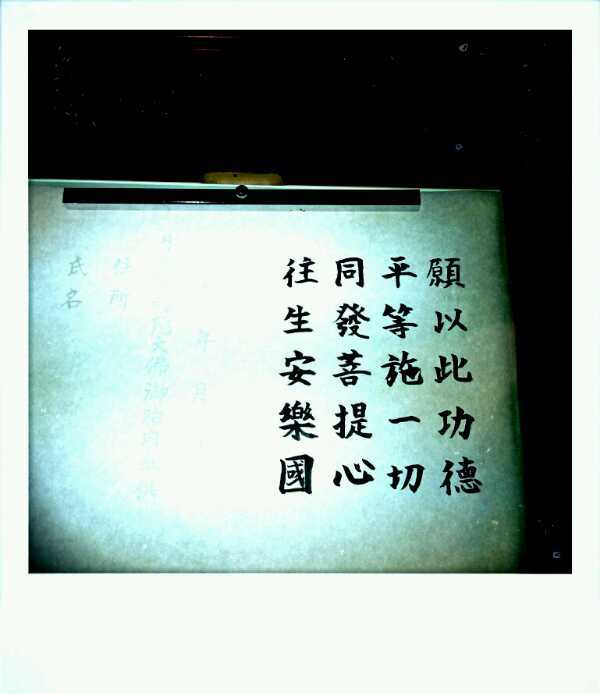 願以此功德
平等施一切
同發菩提心
往生安樂國
年月
大佛御胎内
住所
氏名